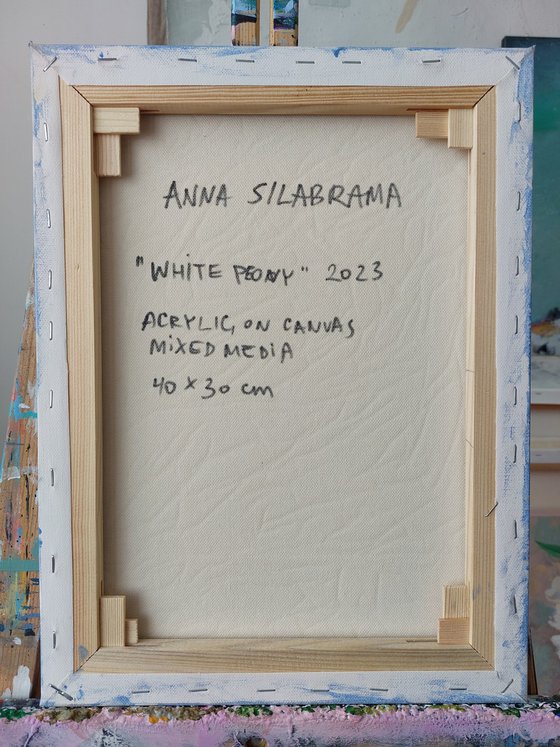 ANNA SILABRAMA
"WHITE PEONY" 2023
ACRYLIC, ON CANVAS
MIXED MEDIA
40 x 30 cm